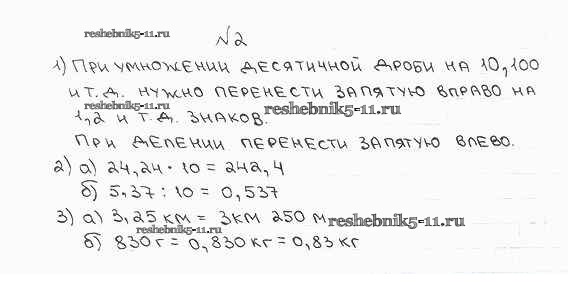 reshebnik5-11.ru
№2
1) При умножении десятичной дроби на 10,100
и т.д. нужно перенести запятую вправо на
reshebnik5-11.ru
1,2 и т.д. знаков.
reshebnik5-11.ru
При делении перенести запятую влево.
2) а) 24,24 · 10 = 242,4
б) 5,37 : 10 = 0,537
3) а) 3,25 км = 3км 250 м
reshebnik5-11.ru
reshebnik5-11.ru
б) 830 г = 0,830 кг = 0,83 кг